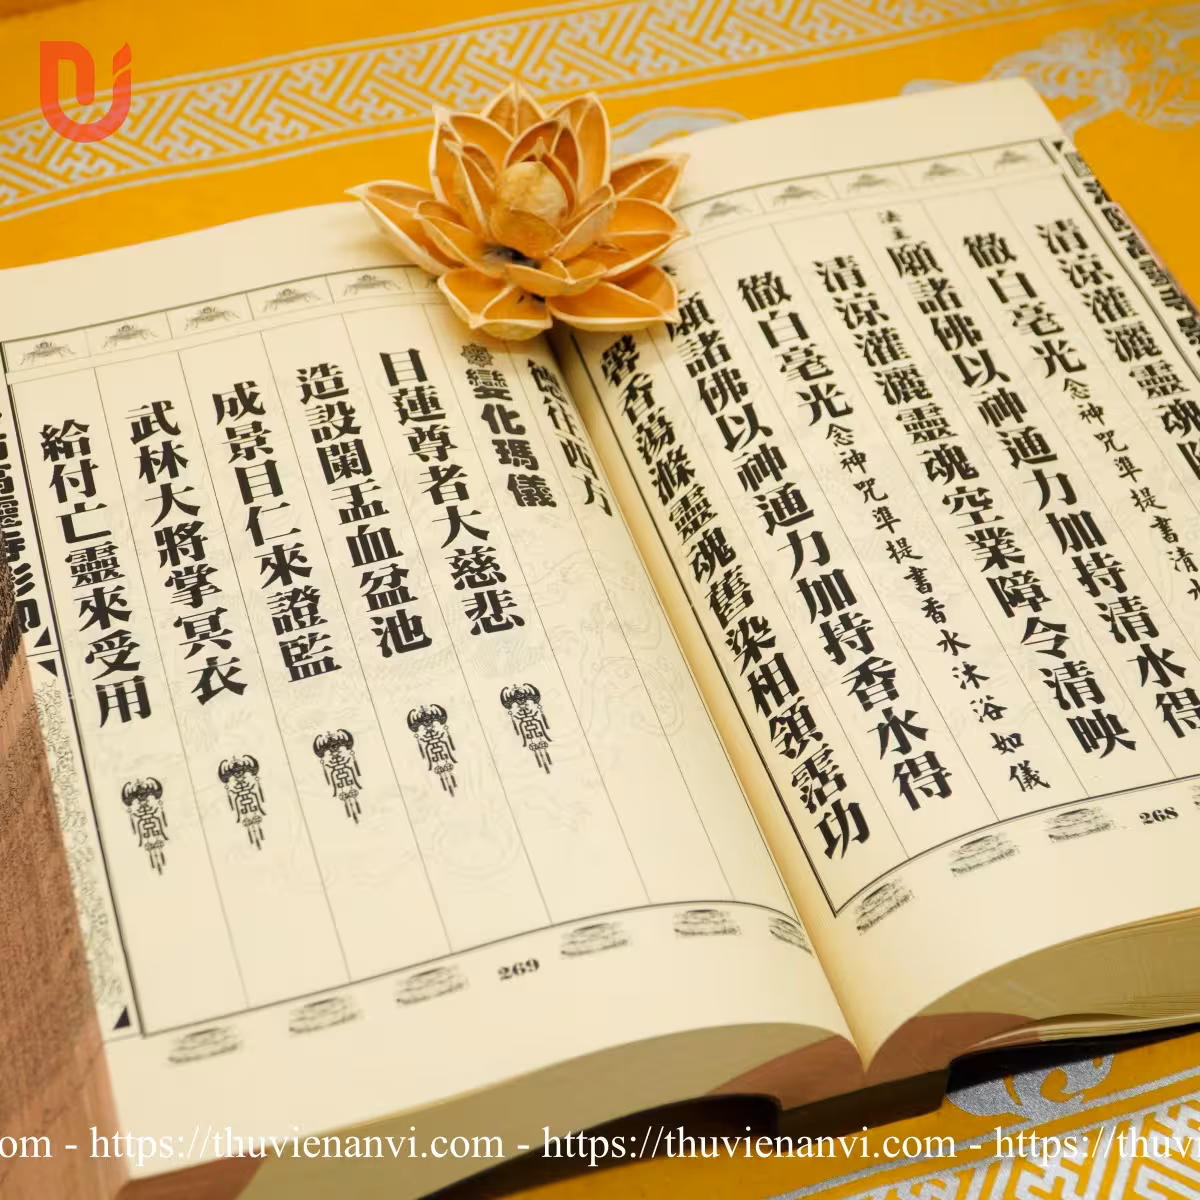 清涼灌灑靈魂
徹白毫光 念神咒準提書清
法主 願諸佛以神通力加持清水得
清涼灌灑靈魂空業障令清映
徹白毫光 念神咒準提書香水沐浴如儀
願諸佛以神通力加持香水得
香湯滌靈魂舊染相領霑功
268
往西方
變化瑪儀
目蓮尊者大慈悲
造設闌盂血盆池
成景目仁來證監
武林大將掌冥衣
給付亡靈來受用
269
om - https://thuvienanvi.com - https://thuvienanvi.com - https://thuvi